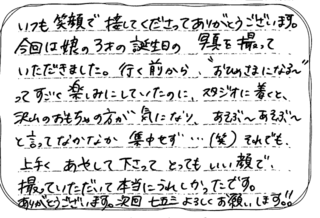 いつも笑顔で接してくださってありがとうございます。
今回は娘の3才の誕生日の写真を撮って
いただきました。行く前から、"おひめさまになる〜"
ってすごく楽しみにしていたのに、スタジオに着くと、
沢山のおもちゃの方が気になり、あそぶ〜あそぶ〜
と言ってなかなか集中せず…(笑)それでも、
上手くあやして下さってとってもいい顔で、
撮っていただいて本当にうれしかったです。
ありがとうございます。次回七五三よろしくお願いします!!